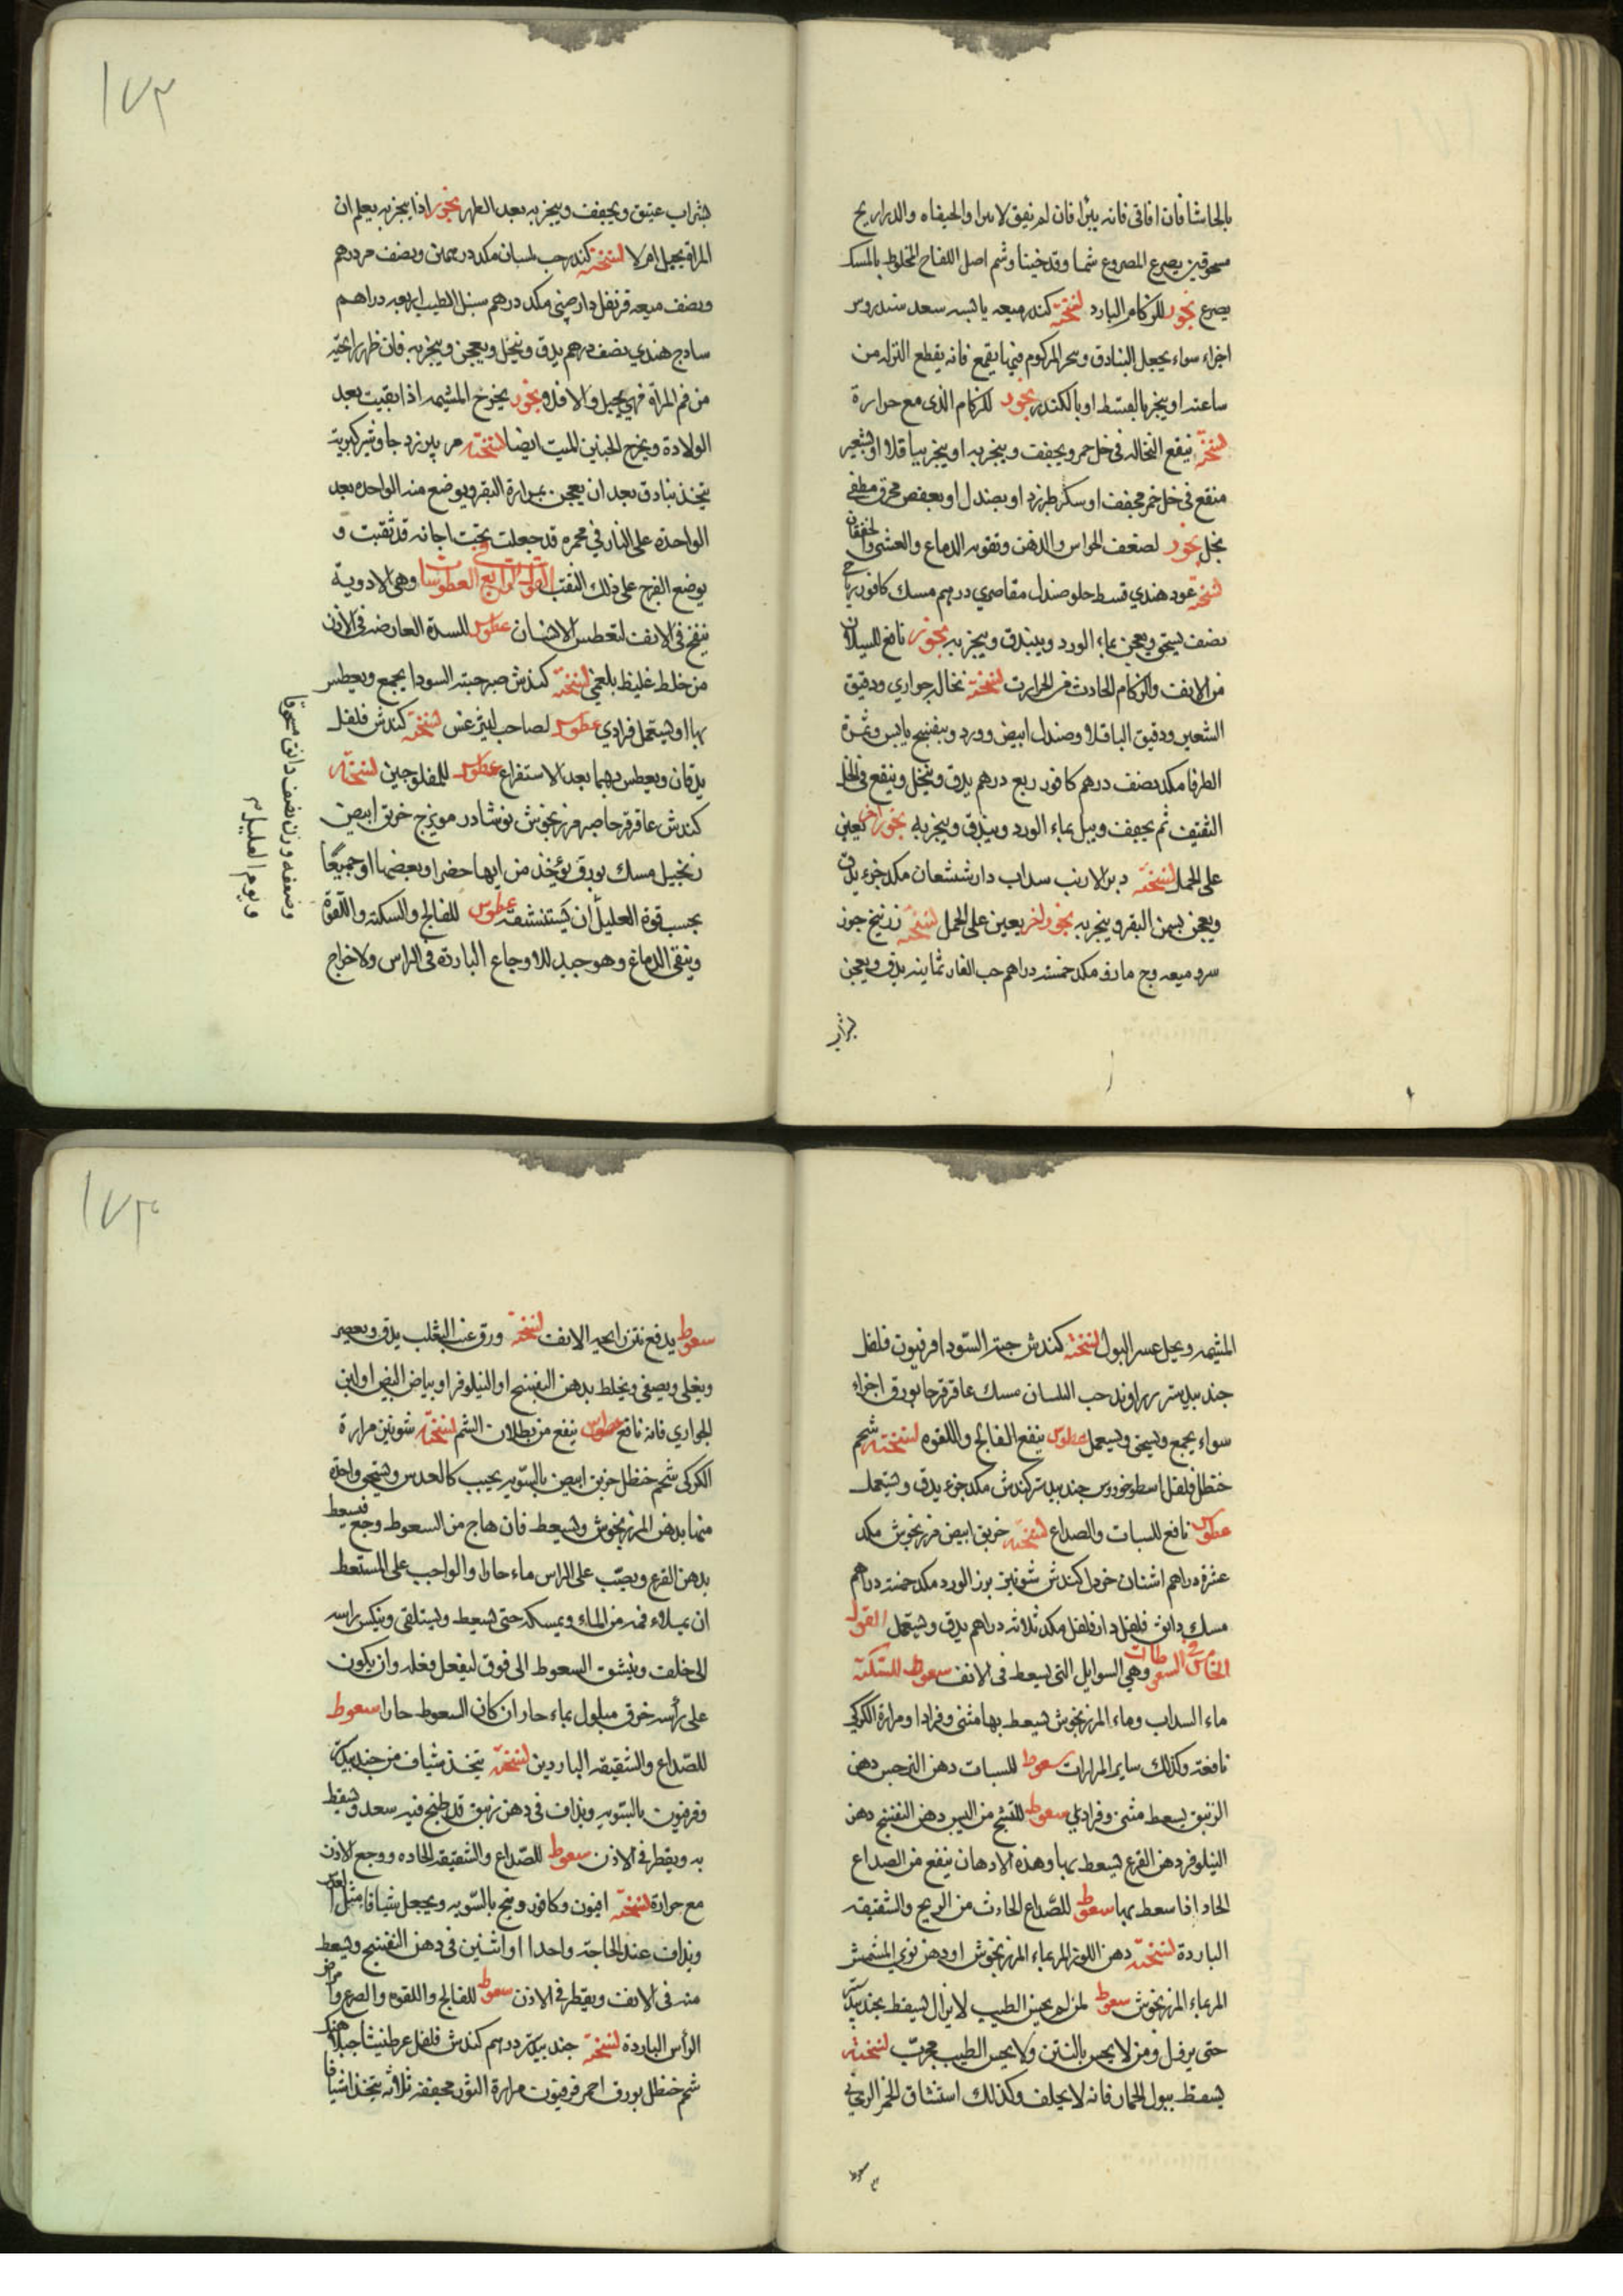 بالحاشا فان افاق فانه يبرأ فان لم يفق لا يبرا والحيفاه والدراريح
مسحوقين يصرع المصروع شما وقد خينا وشم اصل اللفاح المخلوط بالمسك
يصرع بخور للزكام البارد نسخته كندر ميعه يابسه سعد سندروس
اجزاء سواء يجعل البنادق وبخر المزكوم فيها بقمع فانه يقطع النزله من
ساعته او يبخر بالقسط او بالكندر بخور للزكام الذي مع حرارة
نسخته ينقع النخاله في خل خمر ويجفف ويبخر به او يبخر بباقلا او بشعير
منقع في خل خمر مجفف او سكر طبرزد او بصندل او بعفص محرق مطفي
بخل بخور لضعف الحواس والذهن وتقويه الدماغ والغشي والخفقان
نسخته عود هندي قسط حلو صندل مقاصري درهم مسك كافور رياحي
نصف يسحق ويعجن بماء الورد ويبندق ويبخر به بخور نافع للسيلان
من الانف والزكام الحادث من الحرارت نسخته نخاله حواري ودقيق
الشعير ودقيق الباقلا وصندل ابيض وورد وبنفسج يابس وثمرة
الطرفا مكد نصف درهم كافور ربع درهم يدق وينخل وينقع في الخل
الثقيف ثم يجفف ويبل بماء الورد ويبندق ويبخر به بخور اخر يعين
على الحمل نسخته دبر الارنب سداب دارشيشعان مكد جزء يدق
ويعجن بسمن البقر ويبخر به بخور اخر يعين على الحمل نسخته زرنيخ جوز
سرو ميعه وج مارف مكد خمسة دراهم حب الغار ثمانيه يدق ويعجن
بشراب
١٧٢
بشراب عتيق ويجفف ويبخر به بعد الطهر بخور اذا يبخر به يعلم ان
المراة يحبل ام لا نسخته كندر حب بلسان مكد درهمين ونصف مر درهم
ونصف ميعه قرنفل دارصيني مكد درهم سنبل الطيب اربعه دراهم
سادج هندي نصف درهم يدق وينخل ويعجن ويبخر به فان ظهر رائحته
من فم المراة فهي يحبل والا فلا وبخور يخرج المشيمه اذا بقيت بعد
الولادة ويخرج الجنين الميت ايضا نسخته مر بيرزد جاوشير كبريت
يتخذ بنادق بعد ان يعجن بمرارة البقر ويوضع منه الواحده بعد
الواحدة على النار في مجمره قد جعلت تحت اجانه قد ثقبت و
يوضع الفرج على ذلك الثقب القول الرابع في العطوسات وهي الادوية
ينفخ في الانف لتعطس الانسان عطوس للسدة العارضه في الاذن
من خلط غليظ بلغمي نسخته كندش صبر حبه السودا يجمع ويعطس
بها او يستعمل فرادي عطوس لصاحب ليثرغس نسخته كندش فلفل
يدقان ويعطس بهما بعد الاستفراغ عطوس للمفلوجين نسخته
كندش عاقرقرحا صبر مرزنجوش نوشادر مويزج خربق ابيض
زنجبيل مسك بورق يؤخذ من ايها حضر او بعضها او جميعا
بحسب قوة العليل ان يستنشقه عطوس للفالج والسكته واللقوة
وينقي الدماغ وهو جيد للاوجاع الباردة في الراس ولاخراج
وضعفه وزن نصف دانق مسحوقا
ويوم العليل
المشيمه ويحل عسر البول نسخته كندش حبة السودا فرفيون فلفل
جند بيدستر زراوند حب البلسان مسك عاقرقرحا بورق اجزاء
سواء يجمع ويسحق ويستعمل عطوس ينفع الفالج واللقوه نسخته شحم
حنظل فلفل اسطوخودوس جند بيدستر كندش مكد جزء يدق ويستعمل
عطوس نافع للسبات والصداع نسخته خربق ابيض مرزنجوش مكد
عشرة دراهم اشنان خردل كندش شونيز بزر الورد مكد خمسة دراهم
مسك دانق فلفل دارفلفل مكد ثلاثه دراهم يدق ويستعمل القول
الخامس في السعوطات وهي السوايل التي يسعط في الانف سعوط للسكته
ماء السداب وماء المرزنجوش يسعط بها مثنى وفرادا ومرارة الكركي
نافعة وكذلك ساير المرارات سعوط للسبات دهن النرجس دهن
الزنبق يسعط مثنى وفرادي سعوط للتشنج من اليبس دهن البنفسج دهن
النيلوفر دهن القرع يسعط بها وهذه الادهان ينفع من الصداع
الحاد اذا سعط بها سعوط للصداع الحادث من الريح والشقيقه
الباردة نسخته دهن اللوز المر بماء المرزنجوش او دهن نوي المشمش
المر بماء المرزنجوش سعوط لمن لم يحس الطيب لا يزال يسعط بجند بيدستر
حتى يرفل ومن لا يحس بالنتن ولا يحس الطيب مجرب نسخته
يسعط ببول الحمار فانه لا يخلف وكذلك استنشاق الخمر الريحاني
سعوط
١٧٣
سعوط يدفع نتن رايحه الانف نسخته ورق عنب الثعلب يدق ويعصر
ويغلي ويصفي ويخلط بدهن البنفسج او النيلوفر او بياض البيض او لبن
الجواري فانه نافع عطوس ينفع من بطلان الشم نسخته شونيز مرارة
الكركي شحم حنظل خربق ابيض بالسويه يحبب كالعدس ويسحق واحدة
منها بدهن المرزنجوش ويسعط فان هاج من السعوط وجع فيسعط
بدهن القرع ويصب على الراس ماء حارا والواجب على المستعط
ان يملاء فمه من الماء ويمسكه حتى يسعط ويستلقي وينكس راسه
الى خلف وينشق السعوط الى فوق ليفعل فعله وان يكون
على رأسه خرق مبلول بماء حار ان كان السعوط حارا سعوط
للصداع والشقيقه الباردين نسخته يتخذ شياف من جند بيدستر
وفرفيون بالسويه ويذاف في دهن زنبق قد طبخ فيه سعد ويسقط
به ويقطر في الاذن سعوط للصداع والشقيقه الحاده ووجع الاذن
مع حرارة نسخته افيون وكافور وبنج بالسويه ويجعل شيافا مثل العدس
ويذاف عند الحاجة واحدا او اثنين في دهن البنفسج ويسعط
منه في الانف ويقطر في الاذن سعوط للفالج واللقوه والصرع وامراض
الرأس الباردة نسخته جند بيدستر درهم كندش فلفل عرطنيثا جبلاهنك
شحم حنظل بورق احمر فرفيون مرارة الثور مجففه ثلاثه يتخذ اشيافا